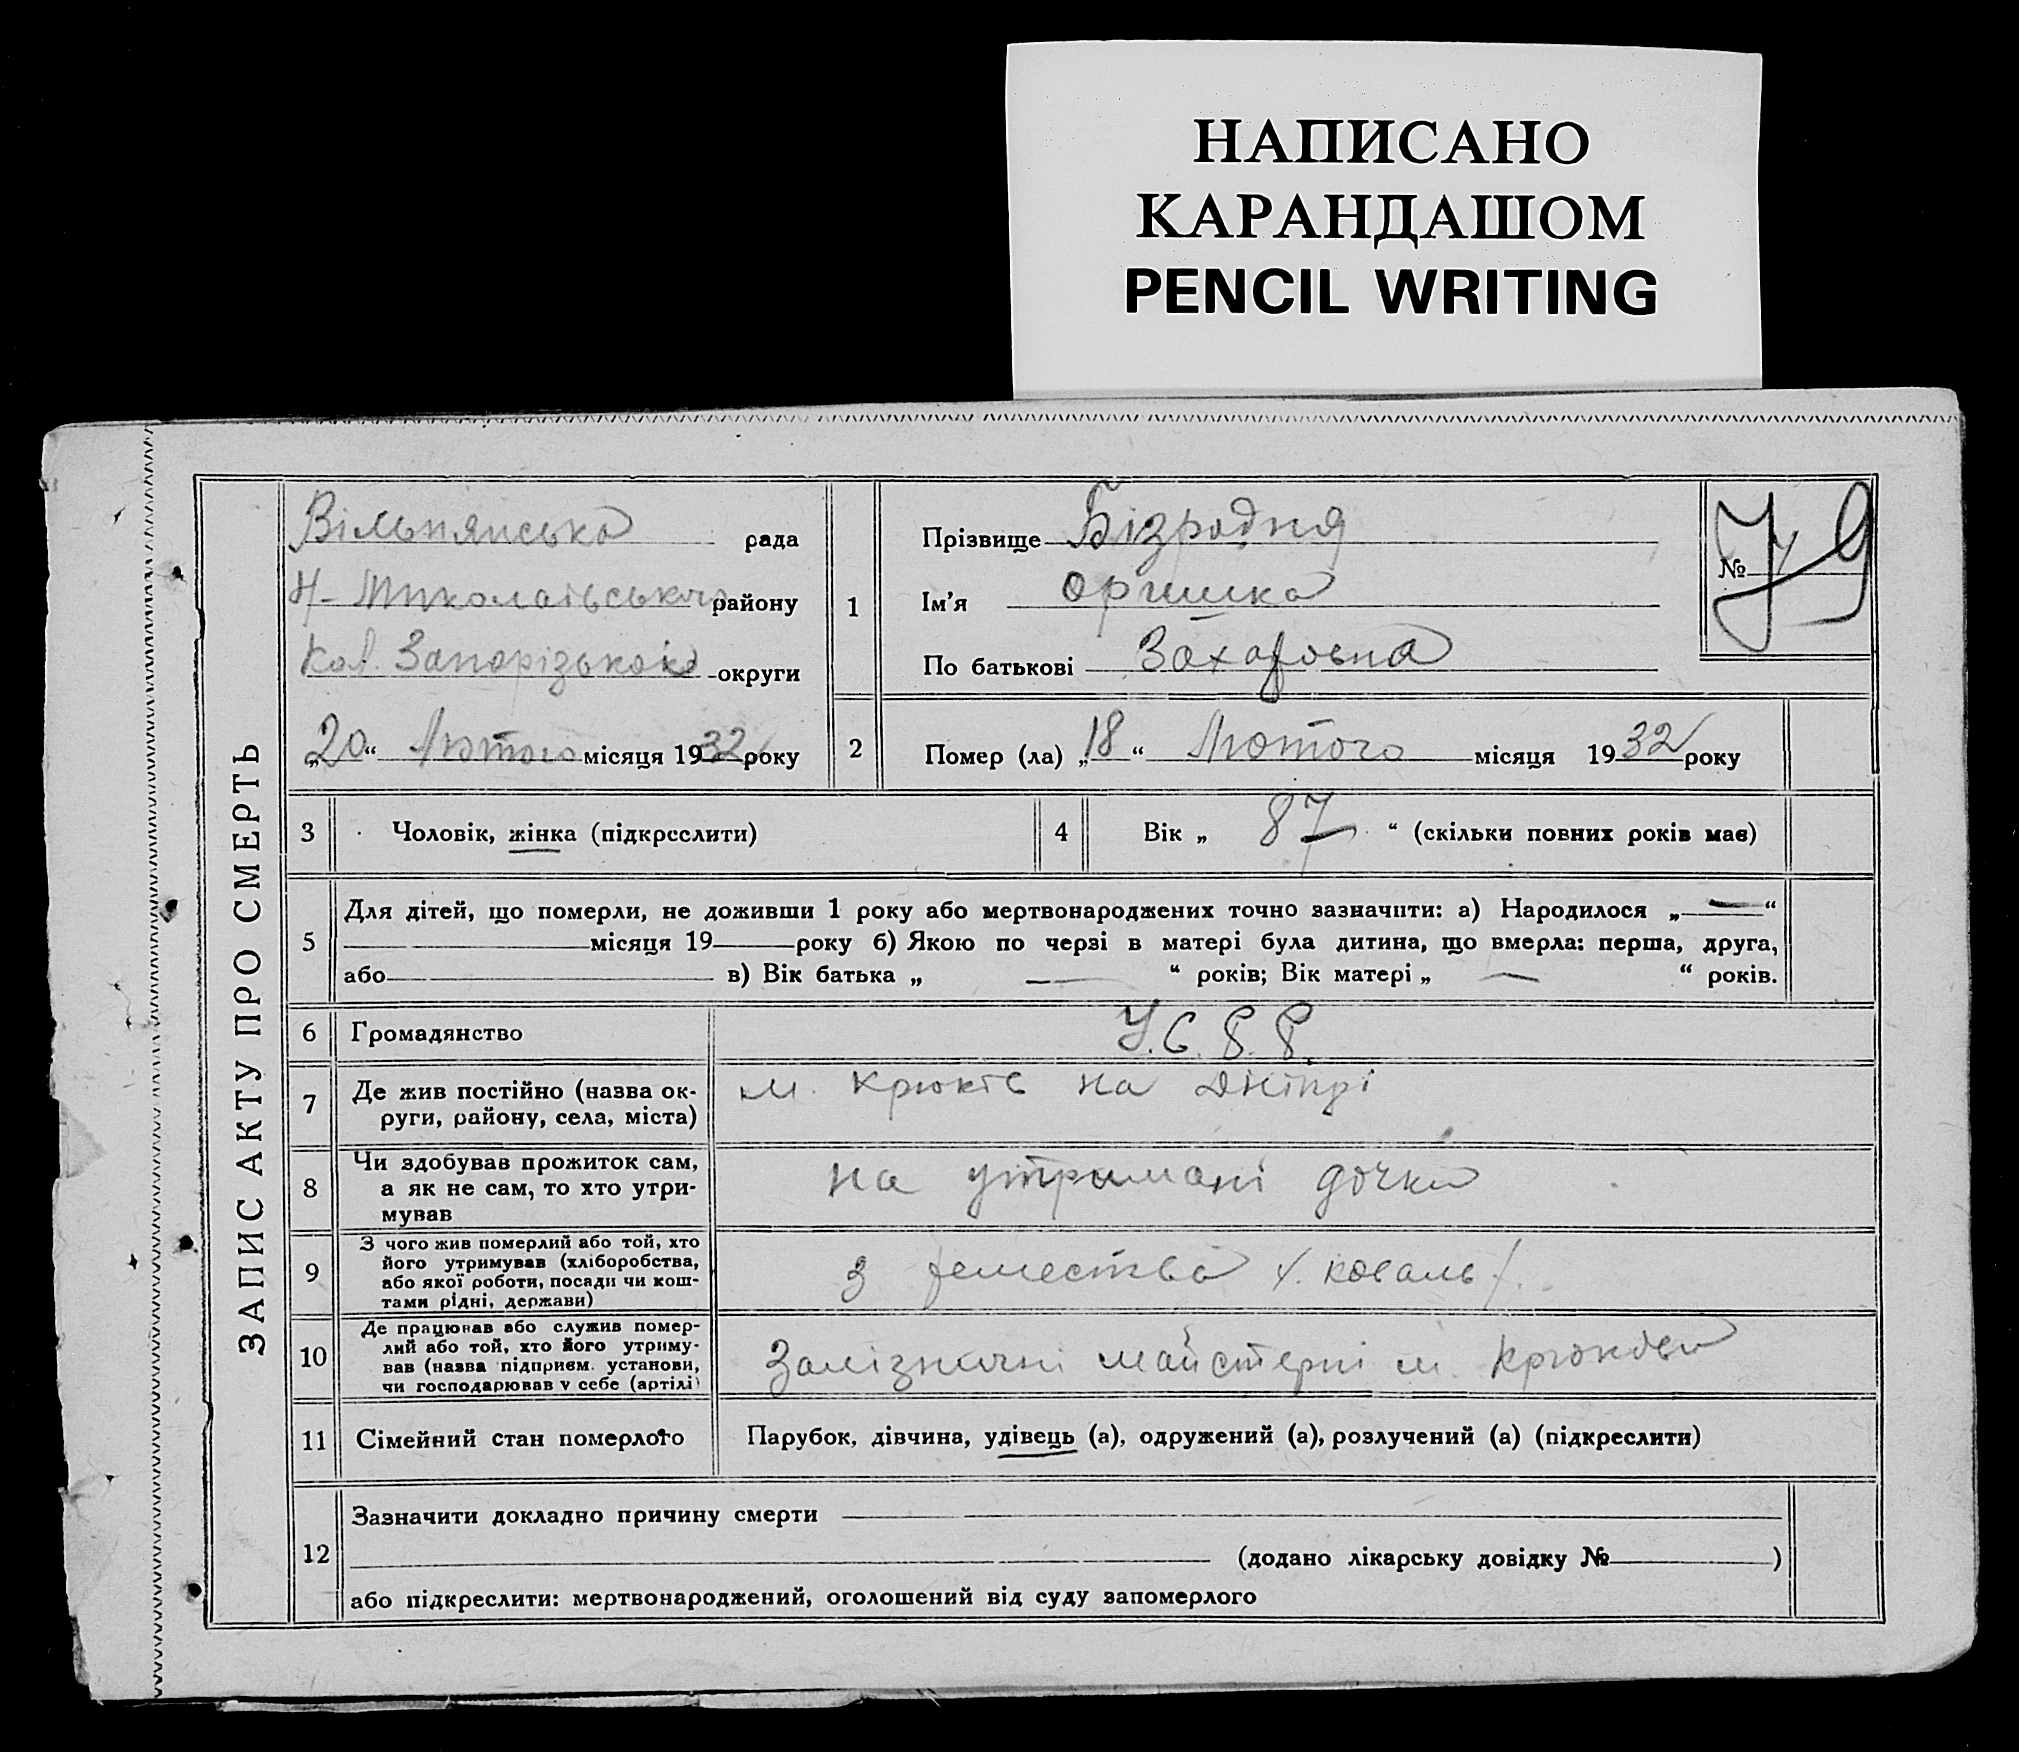 НАПИСАНО
КАРАНДАШОМ
PENCIL WRITING
ЗАПИС АКТУ ПРО СМЕРТЬ
Вільнянська рада
Н-Миколаівського району
Запорізькоі округи
„20“ Лютого місяця 1932 року
1
Прізвище Бізродня
Ім’я Оришка
По батькові Захаровна
№
2 Помер (ла) „18“ Лютого місяця 1932 року
3 Чоловік, жінка (підкреслити)
4 Вік „ 87 “ (скільки повних років має)
5
Для дітей, що померли, не доживши 1 року або мертвонароджених точно зазначити: а) Народилося „—“
місяця 19 року б) Якою по черзі в матері була дитина, що вмерла: перша, друга,
або в) Вік батька „ — “ років; Вік матері „ — “ років.
6 Громадянство У.С.Р.Р.
7 Де жив постійно (назва ок-
руги, району, села, міста)
м. Крюків на Дніпрі
8 Чи здобував прожиток сам,
а як не сам, то хто утри-
мував
на утримані дочки
9 З чого жив померлий або той, хто
його утримував (хліборобства,
або якої роботи, посади чи кош-
тами рідні, держави)
з ремества /. коваль /.
10 Де працював або служив помер-
лий або той, хто його утриму-
вав (назва підприєм. установи,
чи господарював у себе (артілі)
Залізничні майстерні м. Крюкови
11 Сімейний стан померлого Парубок, дівчина, удівець (а), одружений (а), розлучений (а) (підкреслити)
12
Зазначити докладно причину смерти
(додано лікарську довідку № )
або підкреслити: мертвонароджений, оголошений від суду запомерлого